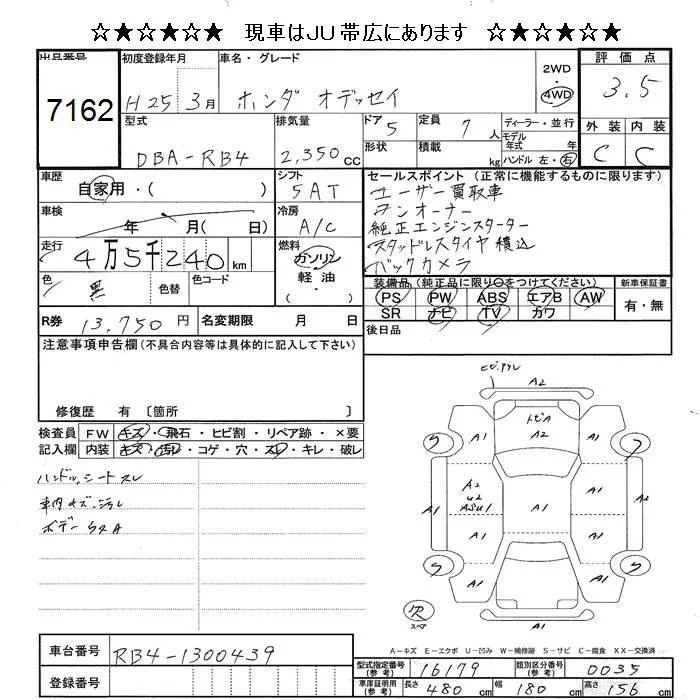 ☆★☆★☆★ 現車はJU帯広にあります ☆★☆★☆★
出品番号 7162
初度登録年月 H25 3月
車名・グレード ホンダ オデッセイ
2WD・4WD
評価点 3.5
外装 C 内装 C
型式 DBA-RB4
排気量 2,350cc
ドア 5
形状
定員 7人
積載 kg
ディーラー・並行
モデル年式 年
ハンドル 左・右
車歴 自家用・( )
シフト 5AT
車検 年 月( 日)
冷房 A/C
走行 4万5千240km
燃料 ガソリン・軽油 ( )
色 黒 色替 色コード
R券 13,750円
名変期限 月 日
セールスポイント(正常に機能するものに限ります)
ユーザー買取車
ワンオーナー
純正エンジンスターター
スタッドレスタイヤ積込
バックカメラ
装備品(純正品に限り○をつけてください)
PS PW ABS エアB AW
SR ナビ TV カワ
新車保証書 有・無
後日品
注意事項申告欄(不具合内容等は具体的に記入して下さい)
修復歴 有 〔箇所 〕
検査員記入欄
FW キズ・飛石・ヒビ割・リペア跡・×要
内装 キズ・汚れ・コゲ・穴・スレ・キレ・破レ
ハンドル、シートスレ
車内キズ・汚れ
A2
トビA
A2
A1 A1
A2
U2
A1 A1 A1 A1
A1 A1
A1
A1
スペア
A-キズ E-エクボ U-凹み W-補修跡 S-サビ C-腐食 XX-交換済
車台番号 RB4-1300439
登録番号
型式指定番号(参考) 16179
類別区分番号(参考) 0035
車庫証明用(参考) 長さ 480cm 幅 180cm 高さ 156cm